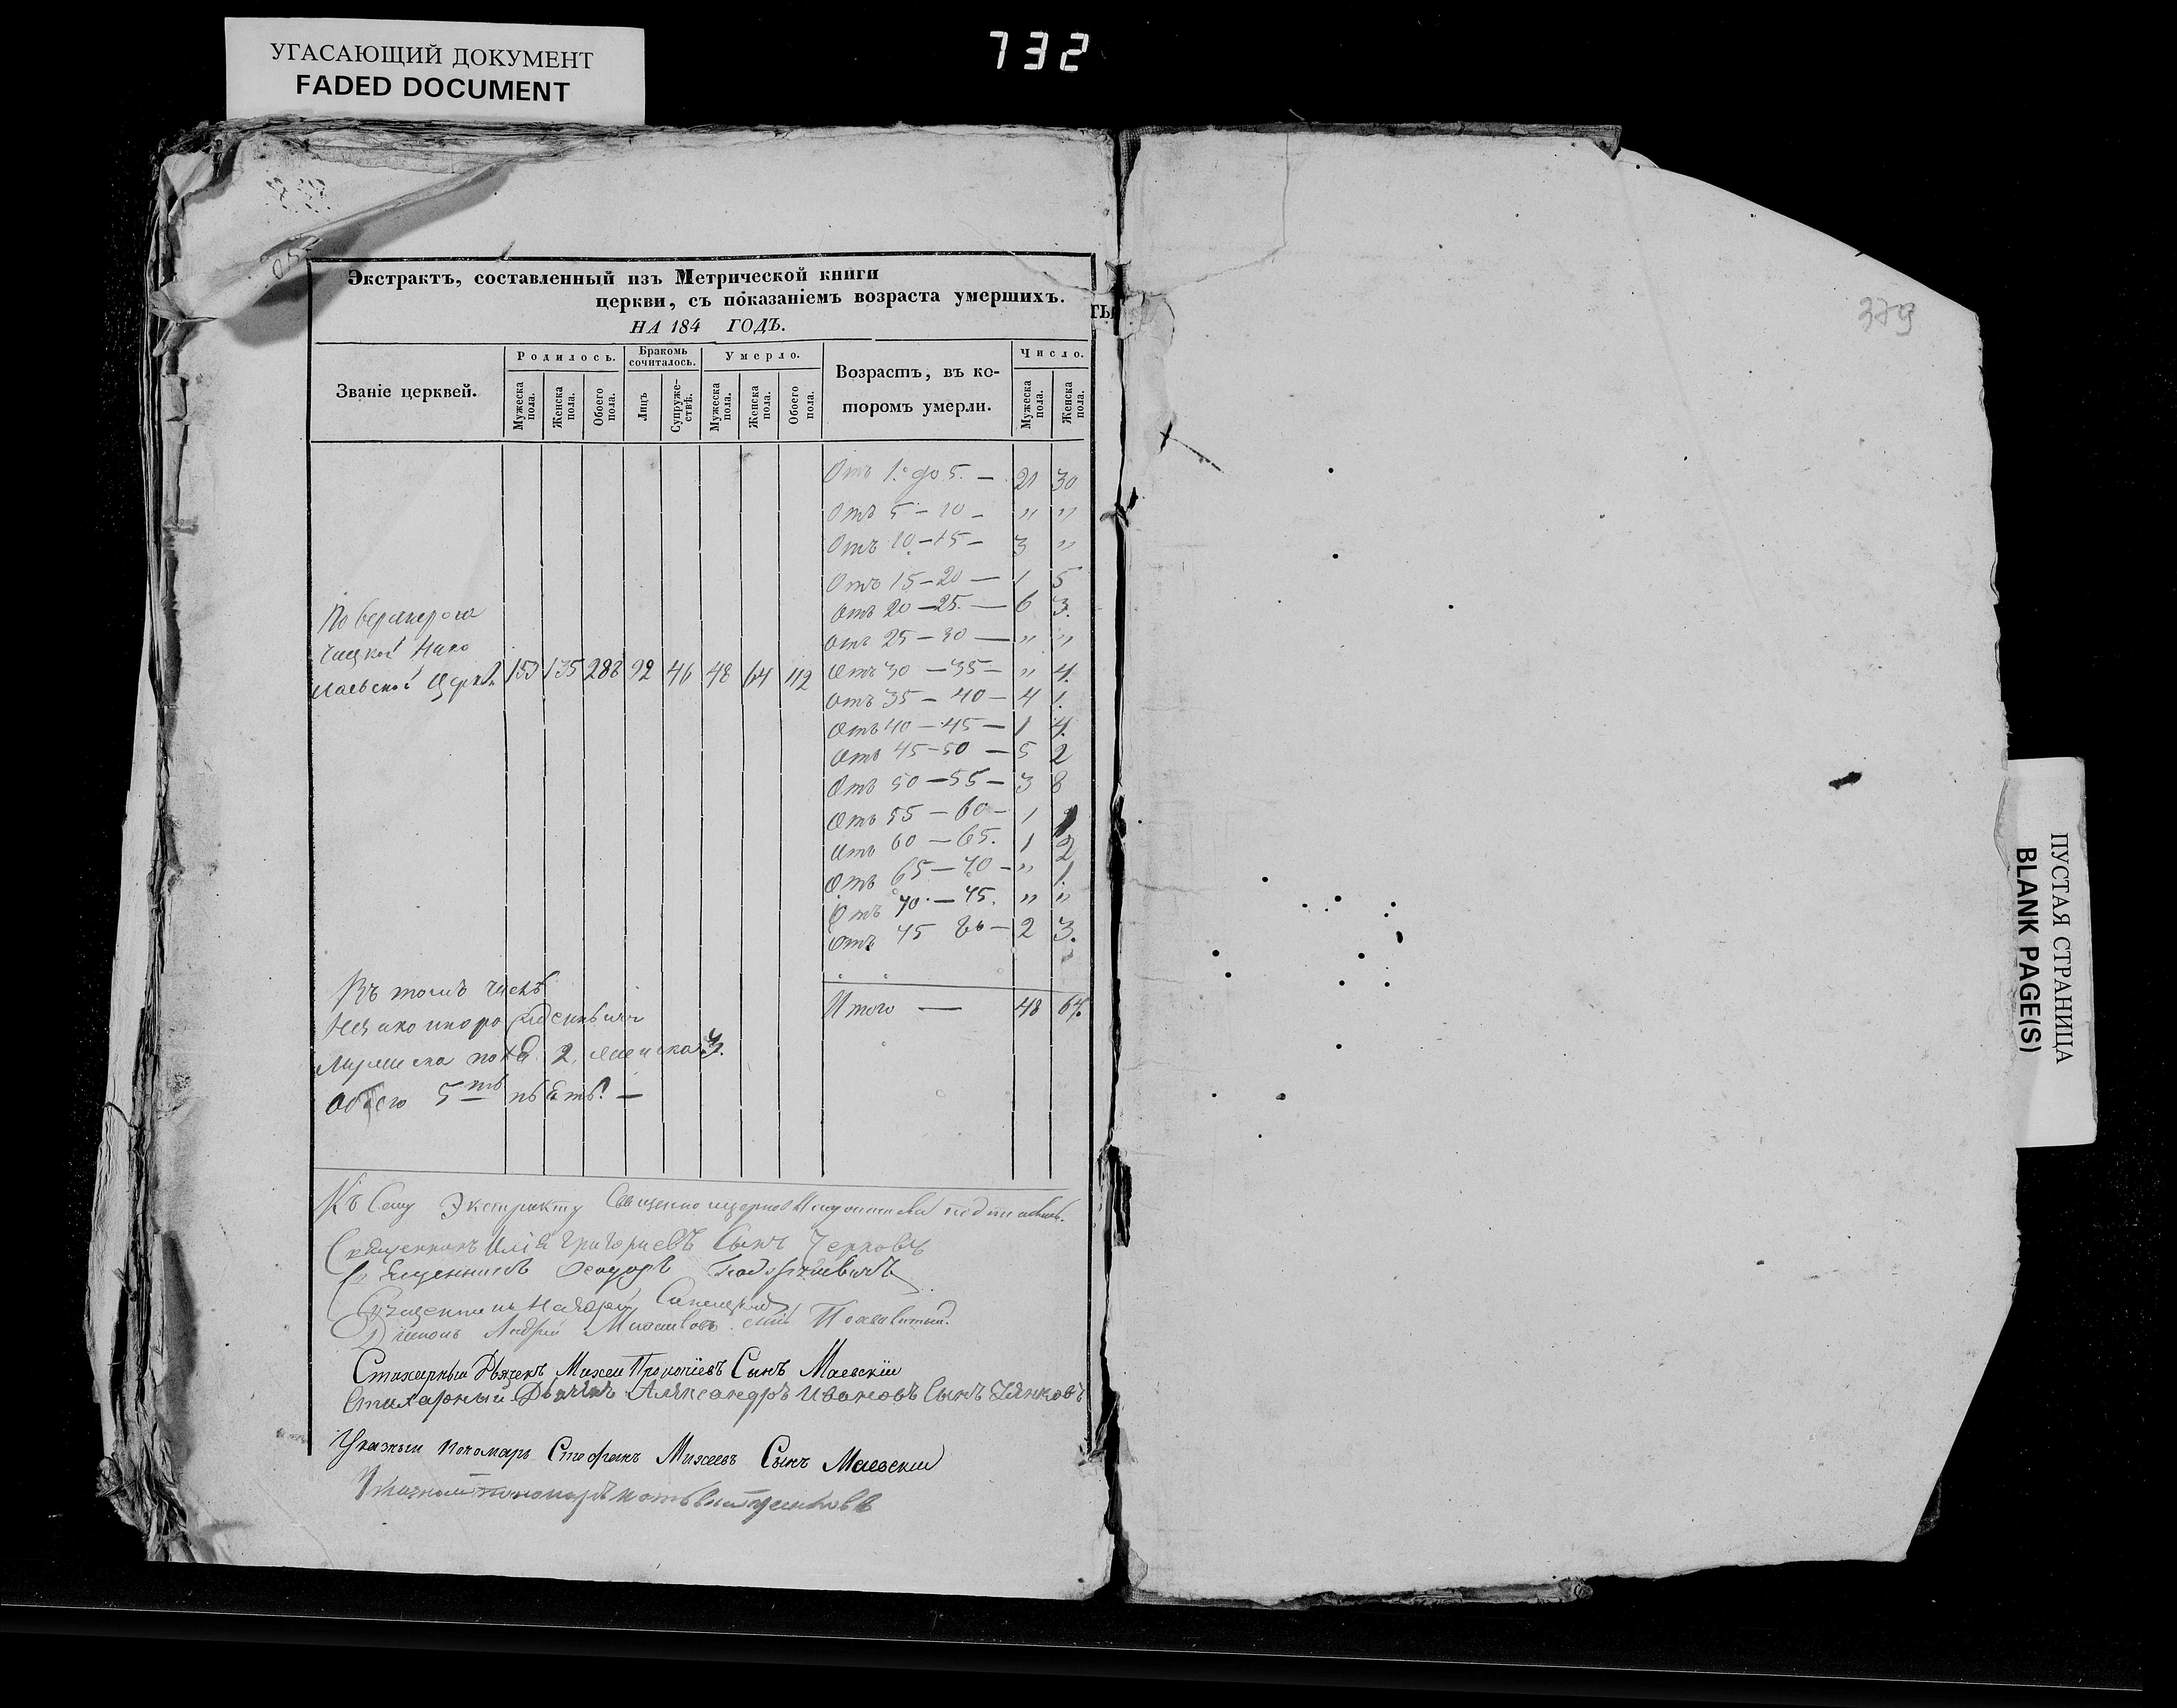 УГАСАЮЩИЙ ДОКУМЕНТ
FADED DOCUMENT
732
Экстрактъ, составленный изъ Метрической книги
церкви, съ показаніемъ возраста умершихъ.
НА 184 ГОДЪ.
Званіе церквей.
Родилось.
Бракомъ сочиталось.
Умерло.
Возрастъ, въ ко-
торомъ умерли.
Число.
Мужеска пола.
Женска пола.
Обоего пола.
Лицъ
Супруже-
ствъ.
Мужеска пола.
Женска пола.
Обоего пола.
Мужеска пола.
Женска пола.
Отъ 1. до 5. — 21 30
Отъ 5 — 10 — " "
Отъ 10 — 15 — 3 "
Отъ 15 — 20 — 1 5
Отъ 20 — 25. — 6 3.
Отъ 25 — 30 — " "
Нико
лаевской Церкви 153 135 288 92 46 48 64 112
Отъ 30 — 35 — " 4.
Отъ 35 — 40 — 4 1.
Отъ 40 — 45 — 1 4.
Отъ 45 — 50 — 5 2
Отъ 50 — 55 — 3 8
Отъ 55 — 60 — 1
Отъ 60 — 65. 1 2
Отъ 65 — 70 — " 1.
Отъ 70. — 75. " "
Отъ 75 80 — 2 3.
Итого — 48 64.
Въ томъ числѣ
Мужеска пола 2, женска 3.
Обоего 5
Къ сему Экстракту
Священникъ Илія Григориевъ Сынъ
Священникъ Феодоръ
Священникъ
Діаконъ Андрей
Стихарный Дьячекъ Михеи Прокопіевъ Сынъ Маевскіи
Стихарный Дьячекъ Александръ Ивановъ Сынъ
Указныи пономарь Стефанъ Михеевъ Сынъ Маевскіи
пономаръ
379
ПУСТАЯ СТРАНИЦА
BLANK PAGE(S)